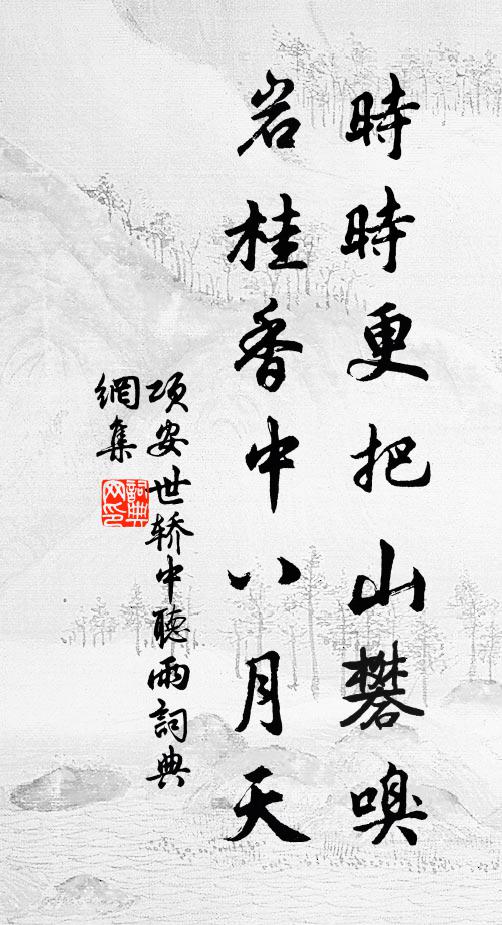 時時更把山礬嗅
岩桂香中八月天
项安世轿中聽雨詞典
網集
詞典
网印